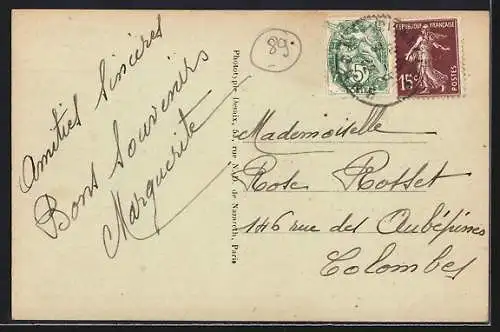 Amitiés Sincères
Bons Souvenirs
Marguerite
89
Phototypie Desaix, 53, rue N.-D. de Nazareth, Paris
5c
REPUBLIQUE FRANÇAISE
15c
POSTES
Mademoiselle
Rose Rosset
146 rue des Aubépines
Colombes